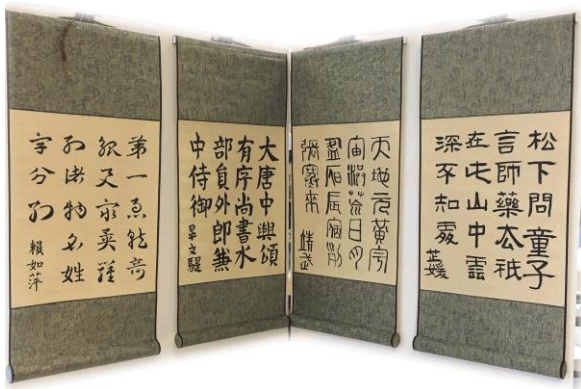 松下問童子
言師藥去祇
在此山中雲
深不知處
芷媛
天地元黃宇
宙洪荒日月
盈昃辰宿列
張寒來
大唐中興頌
有序尚書水
部員外郎兼
中侍御
第一急就奇
觚與眾異羅
列諸物名姓
字分別
賴如萍